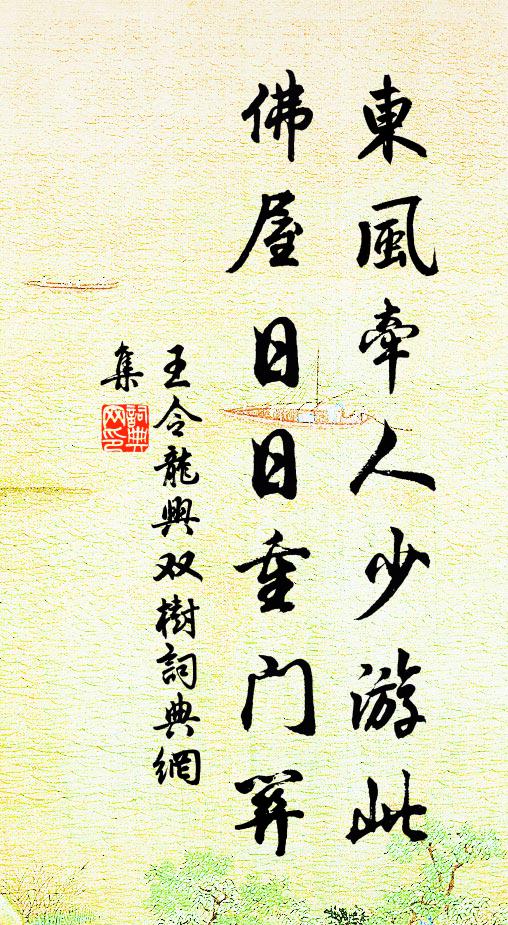 東風牽人少游此
佛屋日日重門開
王令龍興双樹詞典網
集
詞典
网印